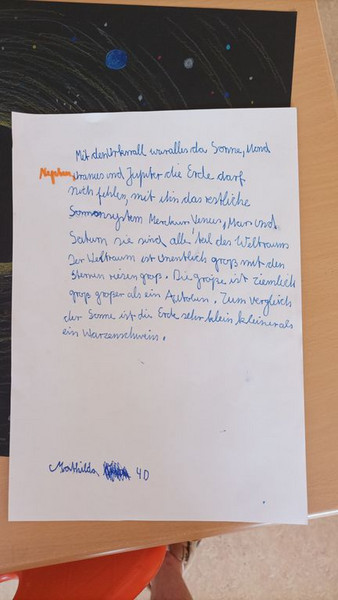 Mit den Urknall war alles da Sonne, Mond
Neptun, Uranus und Jupiter die Erde darf
nich fehlen, mit ihn das restliche
Sonnensystem Merckur Venus, Mars und
Saturn sie sind alle teil des Weltraums
Der Weltraum ist unentlich groß mit den
Sternen riesen groß. Die große ist ziemlich
groß großer als ein Autobun. Zum vergleich
der Sonne ist die Erde sehr klein, kleiner als
ein Warzenschwein.
Mathilda 4D